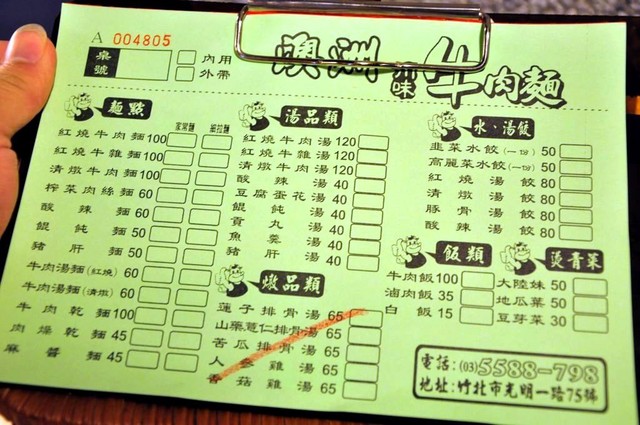 A 004805
桌號
內用
外帶
澳洲 川味 牛肉麵
麵點
家常麵 細拉麵
紅燒牛肉麵 100
紅燒牛雜麵 100
清燉牛肉麵 100
榨菜肉絲麵 60
酸辣麵 60
餛飩麵 50
豬肝麵 50
牛肉湯麵(紅燒) 60
牛肉湯麵(清燉) 60
牛肉乾麵 100
肉燥乾麵 45
麻醬麵 45
湯品類
紅燒牛肉湯 120
紅燒牛雜湯 120
清燉牛肉湯 120
酸辣湯 40
豆腐蛋花湯 40
餛飩湯 40
貢丸湯 40
魚羹湯 40
豬肝湯 40
燉品類
蓮子排骨湯 65
山藥薏仁排骨湯 65
苦瓜排骨湯 65
人參雞湯 65
香菇雞湯 65
水、湯餃
韭菜水餃(一份) 50
高麗菜水餃(一份) 50
紅燒湯餃 80
清燉湯餃 80
豚骨湯餃 80
酸辣湯餃 80
飯類
牛肉飯 100
滷肉飯 35
白飯 15
燙青菜
大陸妹 50
地瓜葉 50
豆芽菜 30
電話:(03)5588-798
地址:竹北市光明一路75號